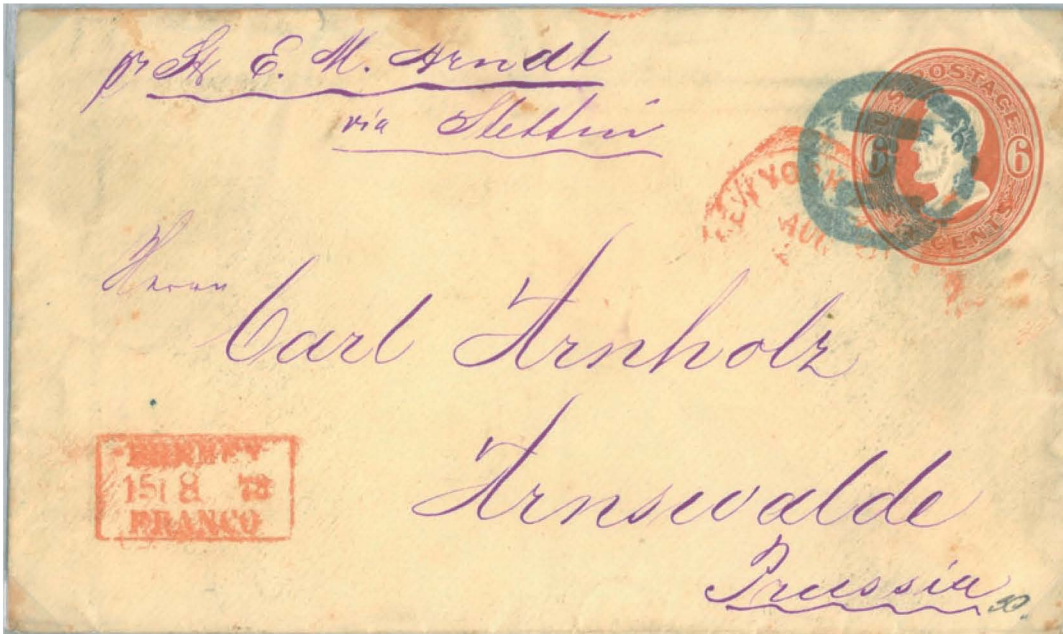 pr Str E. M. Arndt
via Stettin
POSTAGE
6 6
CENTS
NEW YORK
AUG
Herrn
Carl Arnholz
Arnswalde
Prussia
BREMEN
15 8 73
FRANCO